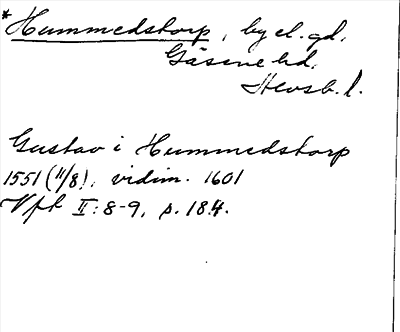 *Hummedstorp, by el. gd.
Gäsene hd.
Älvsb. l.
Gustav i Hummedstorp
1551 (11/8), vidim. 1601
Vft II: 8-9, s. 184.